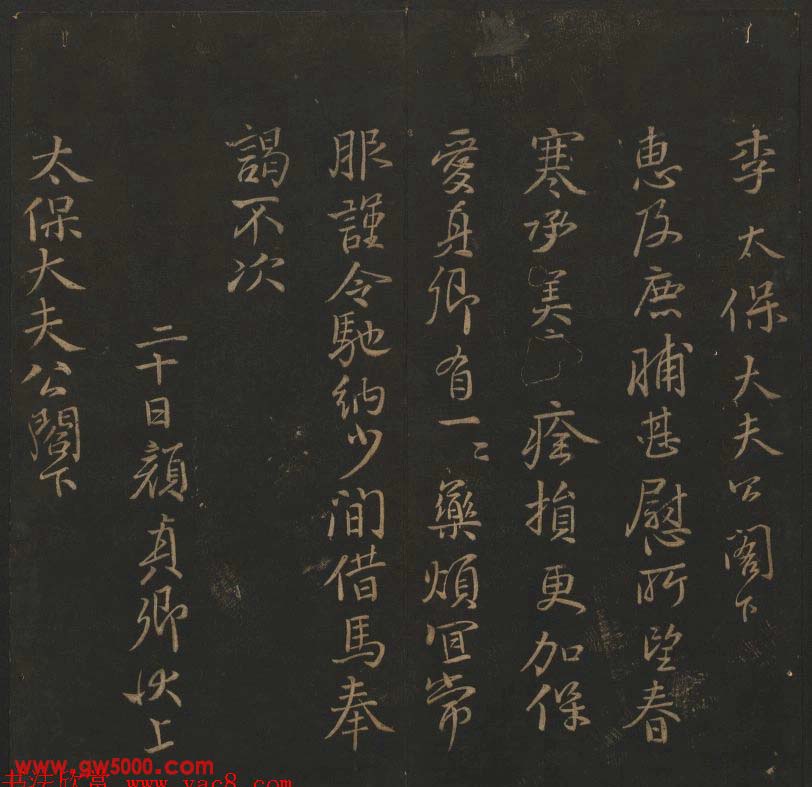 李太保大夫公閤下
惠及鹿脯甚慰所望春
寒承美 痊損更加保
愛真卿有一二藥煩宜常
服謹令馳納少間借馬奉
謁不次
二十日顏真卿狀上
太保大夫公閤下
www.gw5000.com
书法欣赏 www.yac8.com